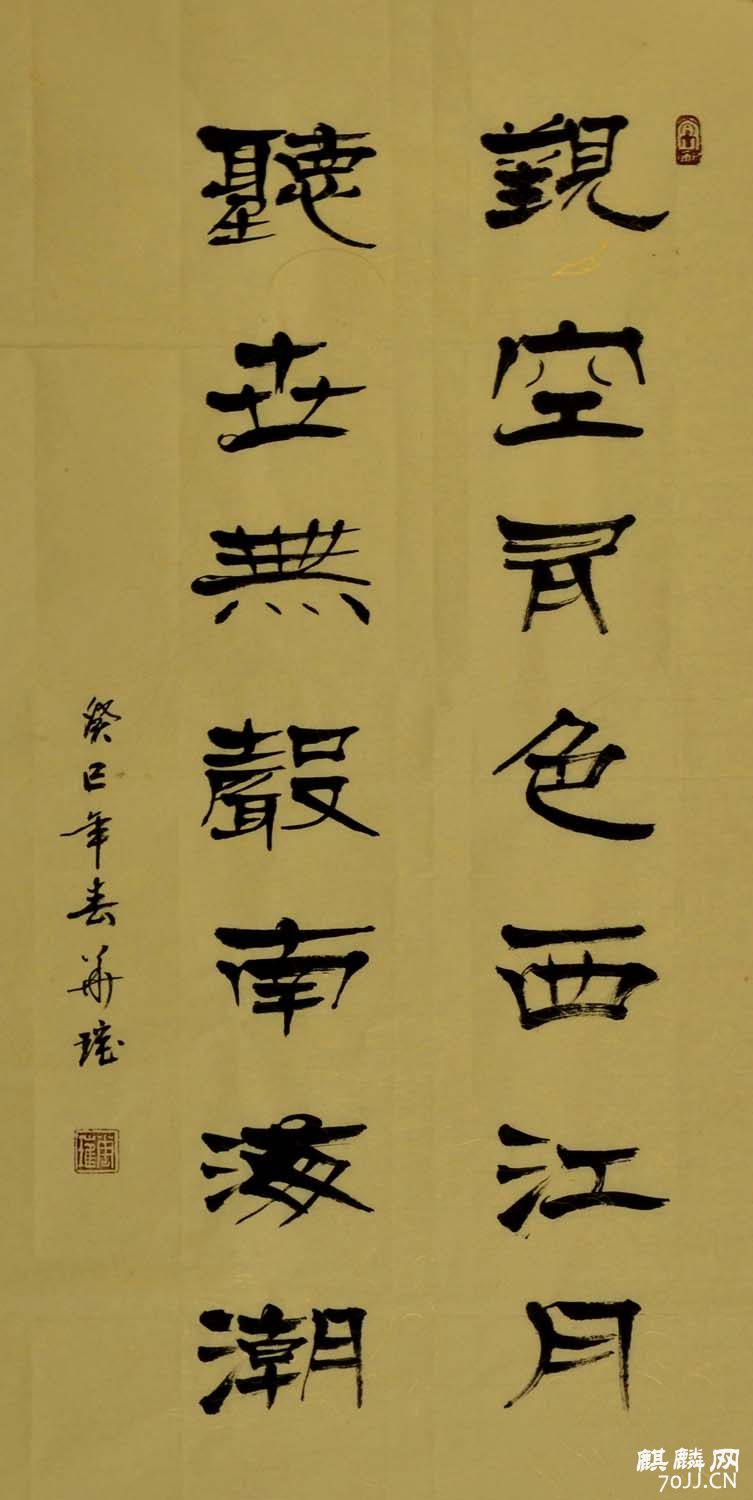 觀空有色西江月
聽世無聲南海潮
癸巳年春華瑤
麒麟网
70JJ.CN